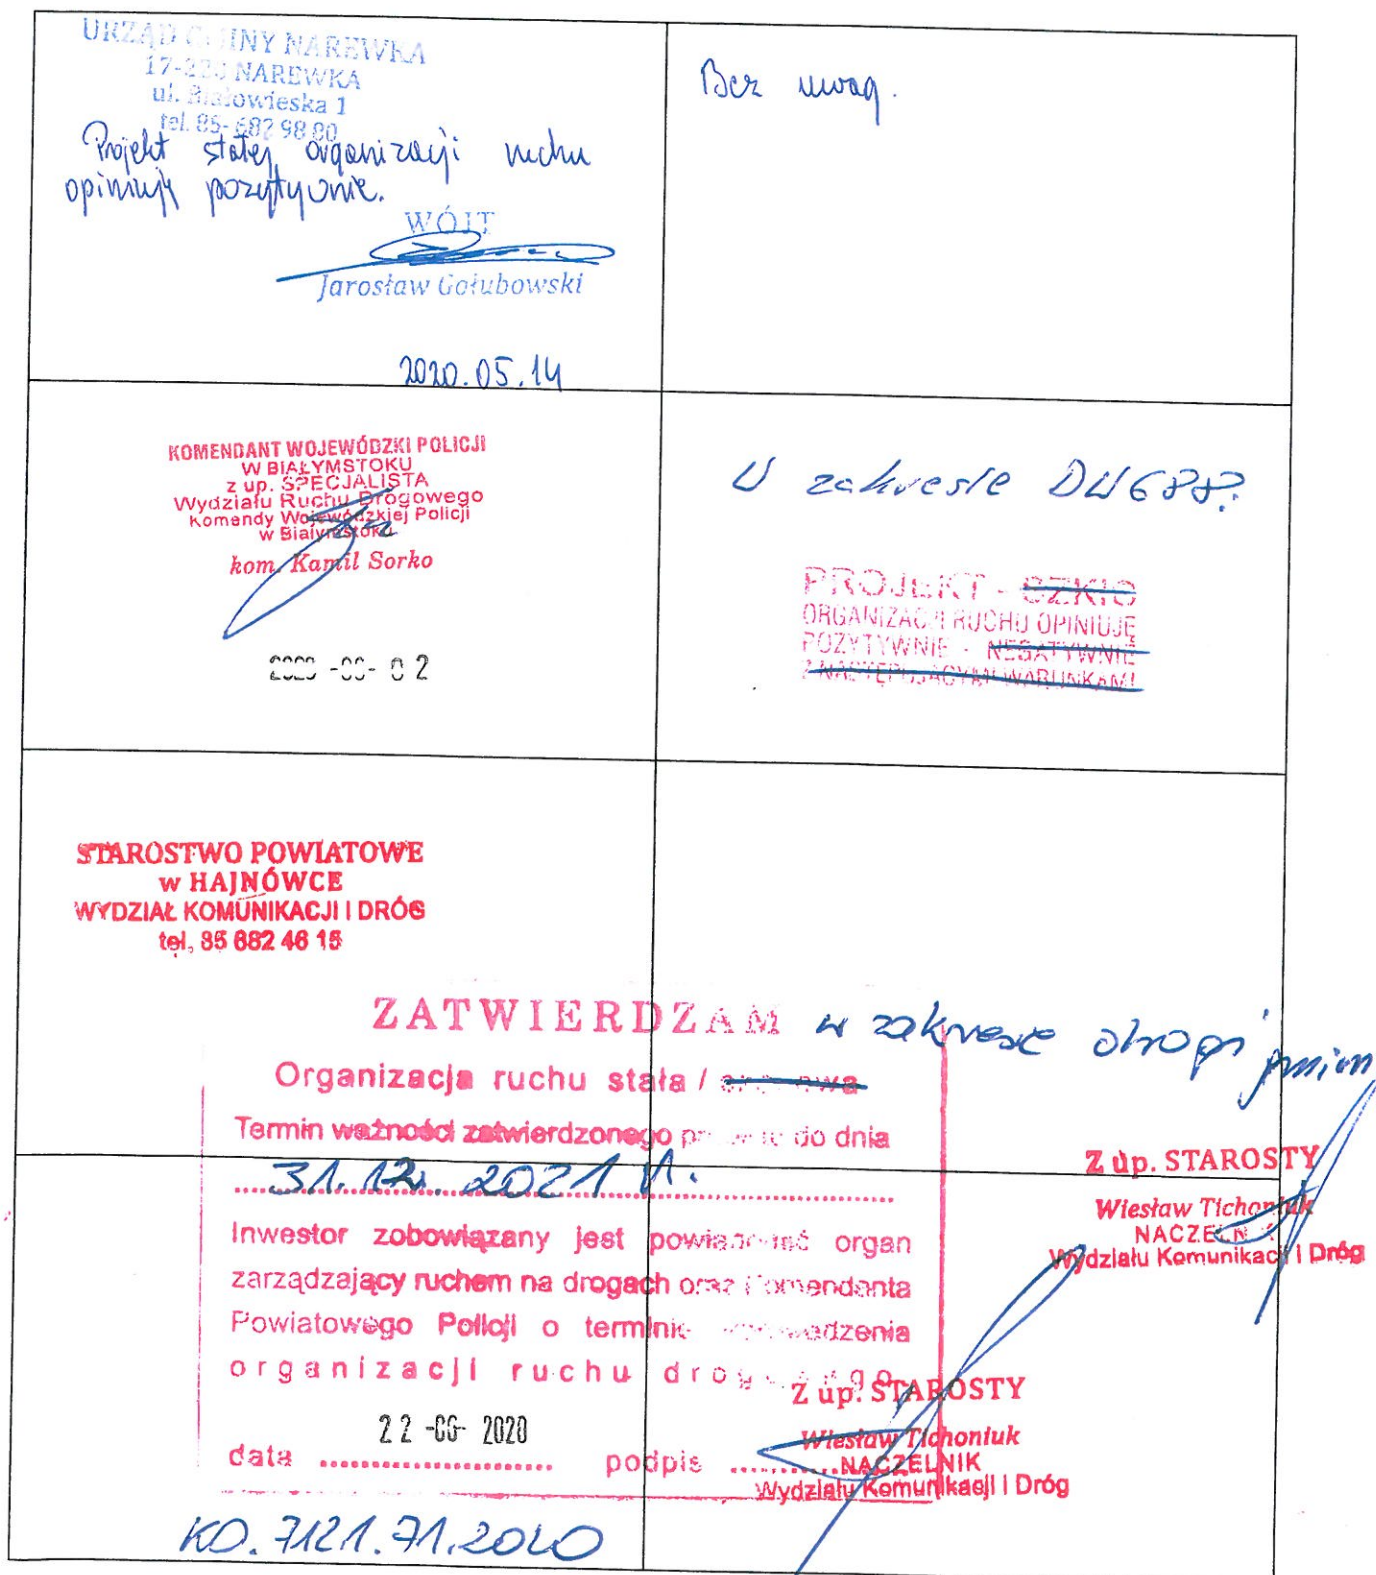 URZĄD GMINY NAREWKA
17-220 NAREWKA
ul. Białowieska 1
tel. 85-682 98 80
Projekt stałej organizacji ruchu
opiniuję pozytywnie.
WÓJT
Jarosław Gołubowski
2020.05.14
Bez uwag.
KOMENDANT WOJEWÓDZKI POLICJI
W BIAŁYMSTOKU
z up. SPECJALISTA
Wydziału Ruchu Drogowego
Komendy Wojewódzkiej Policji
w Białymstoku
kom. Kamil Sorko
2020 -06- 02
W zakresie DW688.
PROJEKT - SZKIC
ORGANIZACJI RUCHU OPINIUJĘ
POZYTYWNIE - NEGATYWNIE
Z NASTĘPUJĄCYMI WARUNKAMI
STAROSTWO POWIATOWE
w HAJNÓWCE
WYDZIAŁ KOMUNIKACJI I DRÓG
tel. 85 682 46 15
ZATWIERDZAM w zakresie drogi gminn
Organizacja ruchu stała /
Termin ważności zatwierdzonego do dnia
31.12.2021 r.
Inwestor zobowiązany jest powiadomić organ
zarządzający ruchem na drogach oraz Komendanta
Powiatowego Policji o terminie wprowadzenia
organizacji ruchu drogowego
data 22 -06- 2020 podpis
Z up. STAROSTY
Wiesław Tichoniuk
NACZELNIK
Wydziału Komunikacji i Dróg
Z up. STAROSTY
Wiesław Tichoniuk
NACZELNIK
Wydziału Komunikacji i Dróg
KD.7121.71.2020